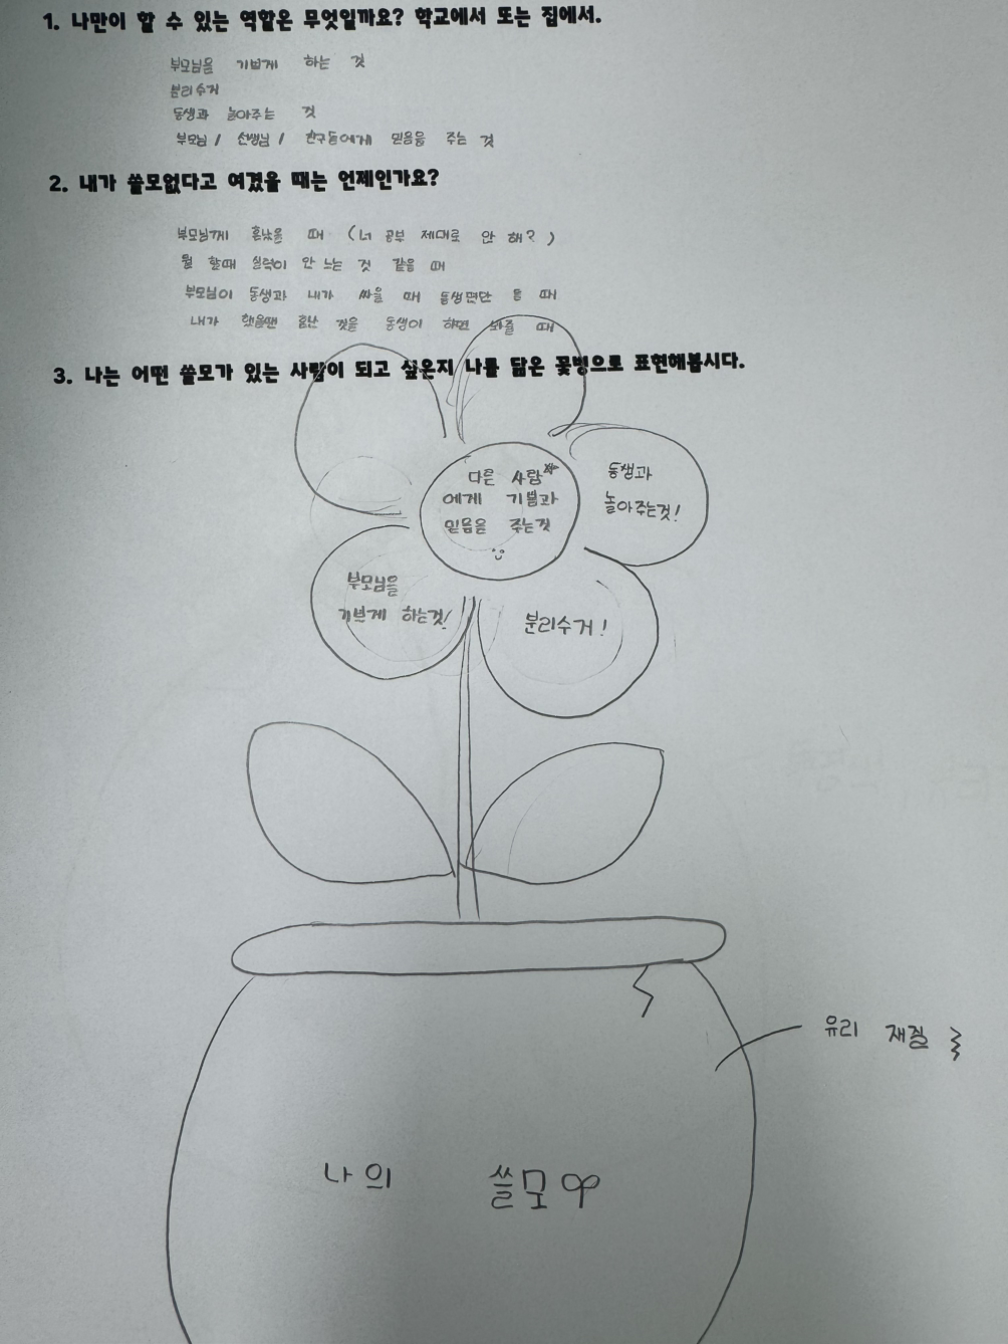 1. 나만이 할 수 있는 역할은 무엇일까요? 학교에서 또는 집에서.
부모님을 기쁘게 하는 것
분리수거
동생과 놀아주는 것
부모님 / 선생님 / 친구들에게 믿음을 주는 것
2. 내가 쓸모없다고 여겼을 때는 언제인가요?
부모님께 혼났을 때 (너 공부 제대로 안 해?)
뭘 할때 실력이 안 느는 것 같을 때
부모님이 동생과 내가 싸울 때 동생편만 들 때
내가 했을땐 혼난 것을 동생이 하면 봐줄 때
3. 나는 어떤 쓸모가 있는 사람이 되고 싶은지 나를 닮은 꽃병으로 표현해봅시다.
다른 사람
에게 기쁨과
믿음을 주는것
동생과
놀아주는것!
부모님을
기쁘게 하는것!
분리수거!
유리 재질
나의 쓸모